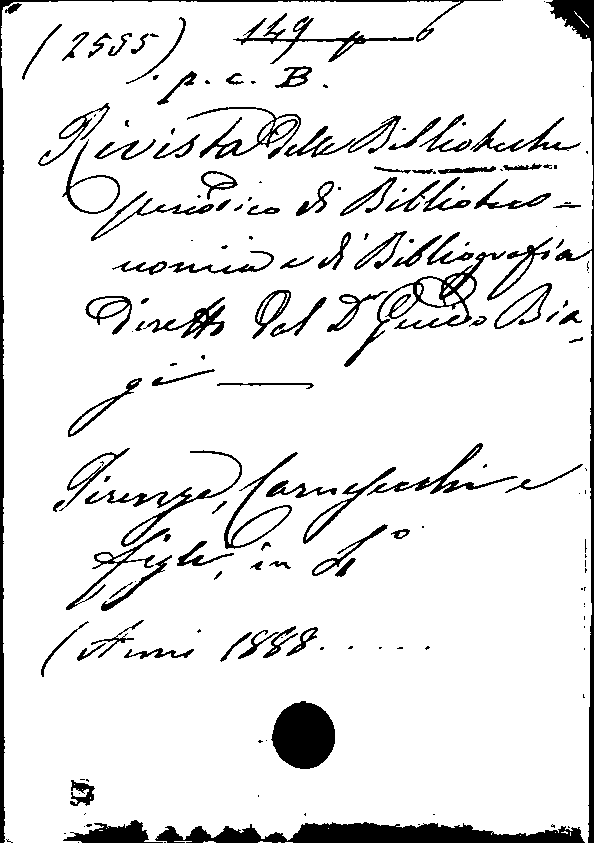 (2555) 149
p. c. B.
Rivista delle Biblioteche
periodico di Biblioteco-
nomia e di Bibliografia
diretto dal Dr Guido Bia-
gi —
Firenze, Carnesecchi e
figli, in 4°
(Anni 1888.....